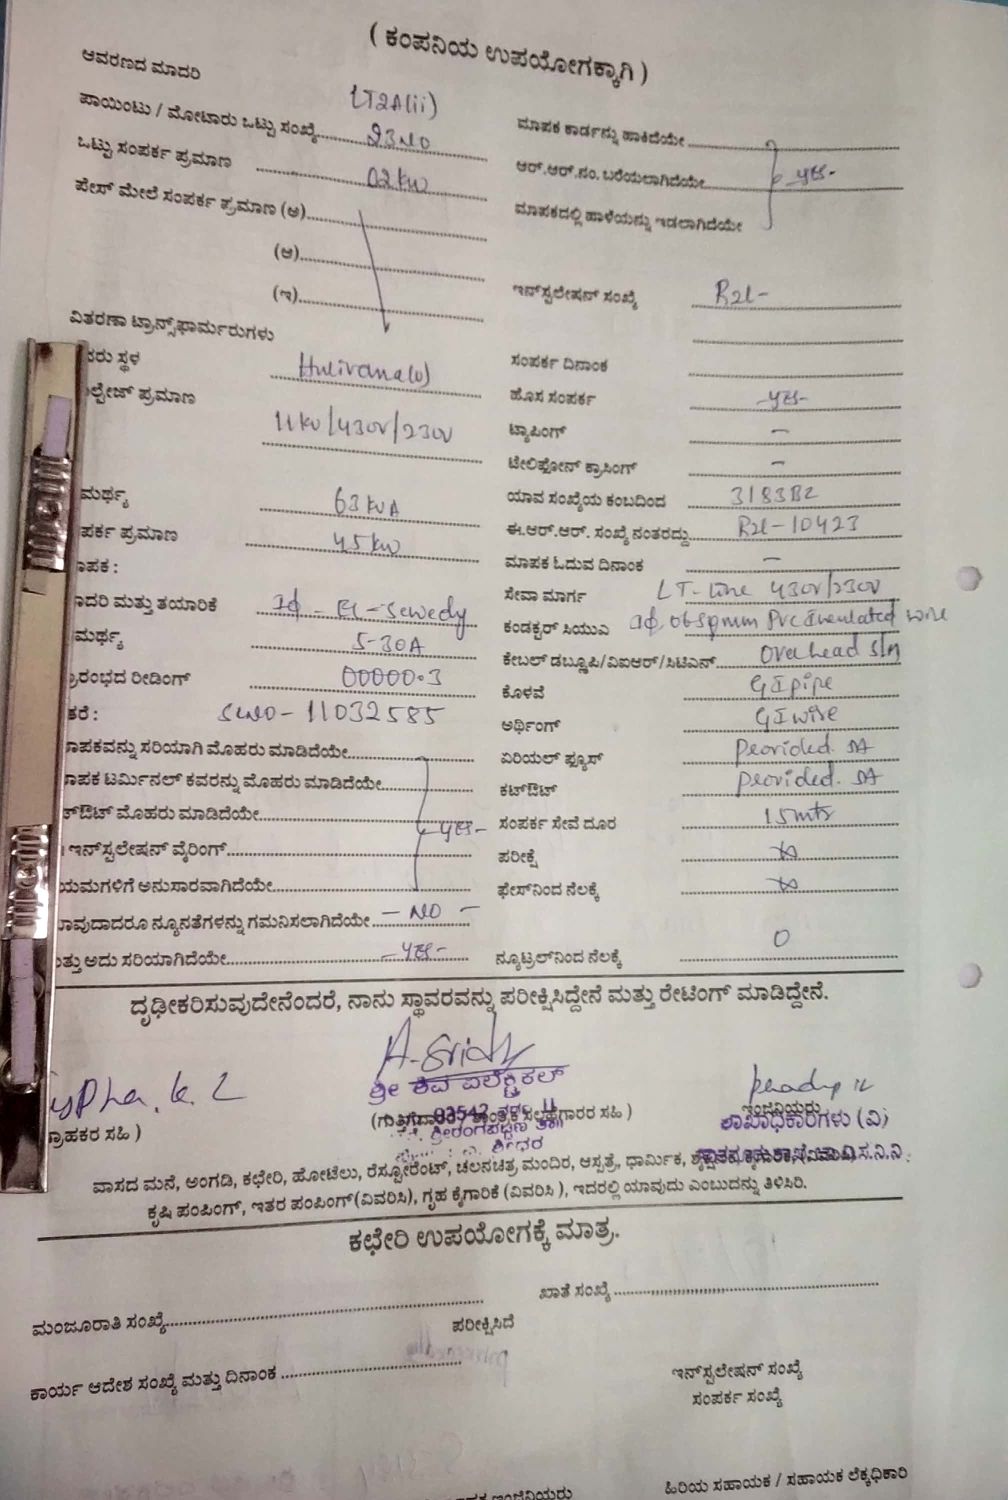 ( ಕಂಪನಿಯ ಉಪಯೋಗಕ್ಕಾಗಿ )
ಆವರಣದ ಮಾದರಿ LT2A(ii)
ಪಾಯಿಂಟು / ಮೋಟಾರು ಒಟ್ಟು ಸಂಖ್ಯೆ 23NO
ಒಟ್ಟು ಸಂಪರ್ಕ ಪ್ರಮಾಣ 02kw
ಪೇಸ್ ಮೇಲೆ ಸಂಪರ್ಕ ಪ್ರಮಾಣ (ಅ)
(ಆ)
(ಇ)
ವಿತರಣಾ ಟ್ರಾನ್ಸ್‌ಫಾರ್ಮರುಗಳು
ಸ್ಥಳ
ಪ್ರಮಾಣ
11kv/430v/230V
ಮರ್ಥ್ಯ 63kVA
ಪರ್ಕ ಪ್ರಮಾಣ 45kw
ಾಪಕ :
ಾದರಿ ಮತ್ತು ತಯಾರಿಕೆ
ಮರ್ಥ್ಯ 5-30A
ರಂಭದ ರೀಡಿಂಗ್ 00000.3
ಕರೆ : 11032585
ಾಪಕವನ್ನು ಸರಿಯಾಗಿ ಮೊಹರು ಮಾಡಿದೆಯೇ
ಾಪಕ ಟರ್ಮಿನಲ್ ಕವರನ್ನು ಮೊಹರು ಮಾಡಿದೆಯೇ
ಟ್‌ಔಟ್ ಮೊಹರು ಮಾಡಿದೆಯೇ YES-
ಇನ್‌ಸ್ಟಲೇಷನ್ ವೈರಿಂಗ್
ಯಮಗಳಿಗೆ ಅನುಸಾರವಾಗಿದೆಯೇ
ಾವುದಾದರೂ ನ್ಯೂನತೆಗಳನ್ನು ಗಮನಿಸಲಾಗಿದೆಯೇ - NO -
ತ್ತು ಅದು ಸರಿಯಾಗಿದೆಯೇ - YES -
ಮಾಪಕ ಕಾರ್ಡನ್ನು ಹಾಕಿದೆಯೇ
ಆರ್.ಆರ್.ನಂ. ಬರೆಯಲಾಗಿದೆಯೇ YES-
ಮಾಪಕದಲ್ಲಿ ಹಾಳೆಯನ್ನು ಇಡಲಾಗಿದೆಯೇ
ಇನ್‌ಸ್ಟಲೇಷನ್ ಸಂಖ್ಯೆ
ಸಂಪರ್ಕ ದಿನಾಂಕ
ಹೊಸ ಸಂಪರ್ಕ -YES-
ಟ್ಯಾಪಿಂಗ್ -
ಟೇಲಿಫೋನ್ ಕ್ರಾಸಿಂಗ್ -
ಯಾವ ಸಂಖ್ಯೆಯ ಕಂಬದಿಂದ
ಈ.ಆರ್.ಆರ್. ಸಂಖ್ಯೆ ನಂತರದ್ದು
ಮಾಪಕ ಓದುವ ದಿನಾಂಕ -
ಸೇವಾ ಮಾರ್ಗ LT-Line 430V/230V
ಕಂಡಕ್ಟರ್ ಸಿಯುಎ
ಕೇಬಲ್ ಡಬ್ಲೂಪಿ/ವಿಐಆರ್/ಸಿಟಿಎಸ್ Overhead
ಕೊಳವೆ GI pipe
ಅರ್ಥಿಂಗ್ GI wire
ಏರಿಯಲ್ ಫ್ಯೂಸ್ Provided.
ಕಟ್‌ಔಟ್ Provided.
ಸಂಪರ್ಕ ಸೇವೆ ದೂರ 15mts
ಪರೀಕ್ಷೆ
ಫೇಸ್‌ನಿಂದ ನೆಲಕ್ಕೆ
ನ್ಯೂಟ್ರಲ್‌ನಿಂದ ನೆಲಕ್ಕೆ 0
ದೃಢೀಕರಿಸುವುದೇನೆಂದರೆ, ನಾನು ಸ್ಥಾವರವನ್ನು ಪರೀಕ್ಷಿಸಿದ್ದೇನೆ ಮತ್ತು ರೇಟಿಂಗ್ ಮಾಡಿದ್ದೇನೆ.
ಶ್ರೀ ಶಿವ ಎಲೆಕ್ಟ್ರಿಕಲ್
ಗ್ರಾಹಕರ ಸಹಿ )
ಸಹಿ ) ಇಂಜಿನಿಯರು
ಶ್ರೀರಂಗಪಟ್ಟಣ ಶಾಖಾಧಿಕಾರಿಗಳು (ವಿ)
ವಾಸದ ಮನೆ, ಅಂಗಡಿ, ಕಛೇರಿ, ಹೋಟೆಲು, ರೆಸ್ಟೋರೆಂಟ್, ಚಲನಚಿತ್ರ ಮಂದಿರ, ಆಸ್ಪತ್ರೆ, ಧಾರ್ಮಿಕ,
ಕೃಷಿ ಪಂಪಿಂಗ್, ಇತರ ಪಂಪಿಂಗ್(ವಿವರಿಸಿ), ಗೃಹ ಕೈಗಾರಿಕೆ (ವಿವರಿಸಿ), ಇದರಲ್ಲಿ ಯಾವುದು ಎಂಬುದನ್ನು ತಿಳಿಸಿರಿ.
ಕಛೇರಿ ಉಪಯೋಗಕ್ಕೆ ಮಾತ್ರ.
ಮಂಜೂರಾತಿ ಸಂಖ್ಯೆ ಖಾತೆ ಸಂಖ್ಯೆ
ಪರೀಕ್ಷಿಸಿದೆ
ಕಾರ್ಯ ಆದೇಶ ಸಂಖ್ಯೆ ಮತ್ತು ದಿನಾಂಕ ಇನ್‌ಸ್ಟಲೇಷನ್ ಸಂಖ್ಯೆ
ಸಂಪರ್ಕ ಸಂಖ್ಯೆ
ಇಂಜಿನಿಯರು ಹಿರಿಯ ಸಹಾಯಕ / ಸಹಾಯಕ ಲೆಕ್ಕಧಿಕಾರಿ